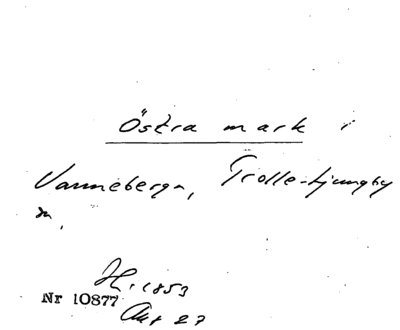 Östra mark i
Vanneberga, Trolle-Ljungby
n.
H. 1853
Nr 10877
Akt 27